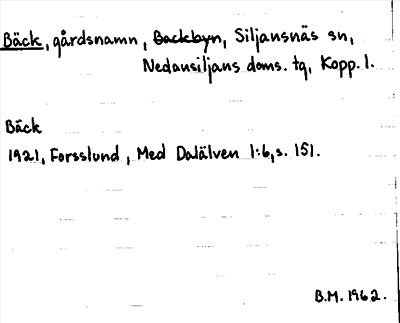 Bäck, gårdsnamn, Backbyn, Siljansnäs sn,
Nedansiljans doms. tg, Kopp. l.
Bäck
1921, Forsslund, Med Dalälven 1:6, s. 151.
B.M. 1962.